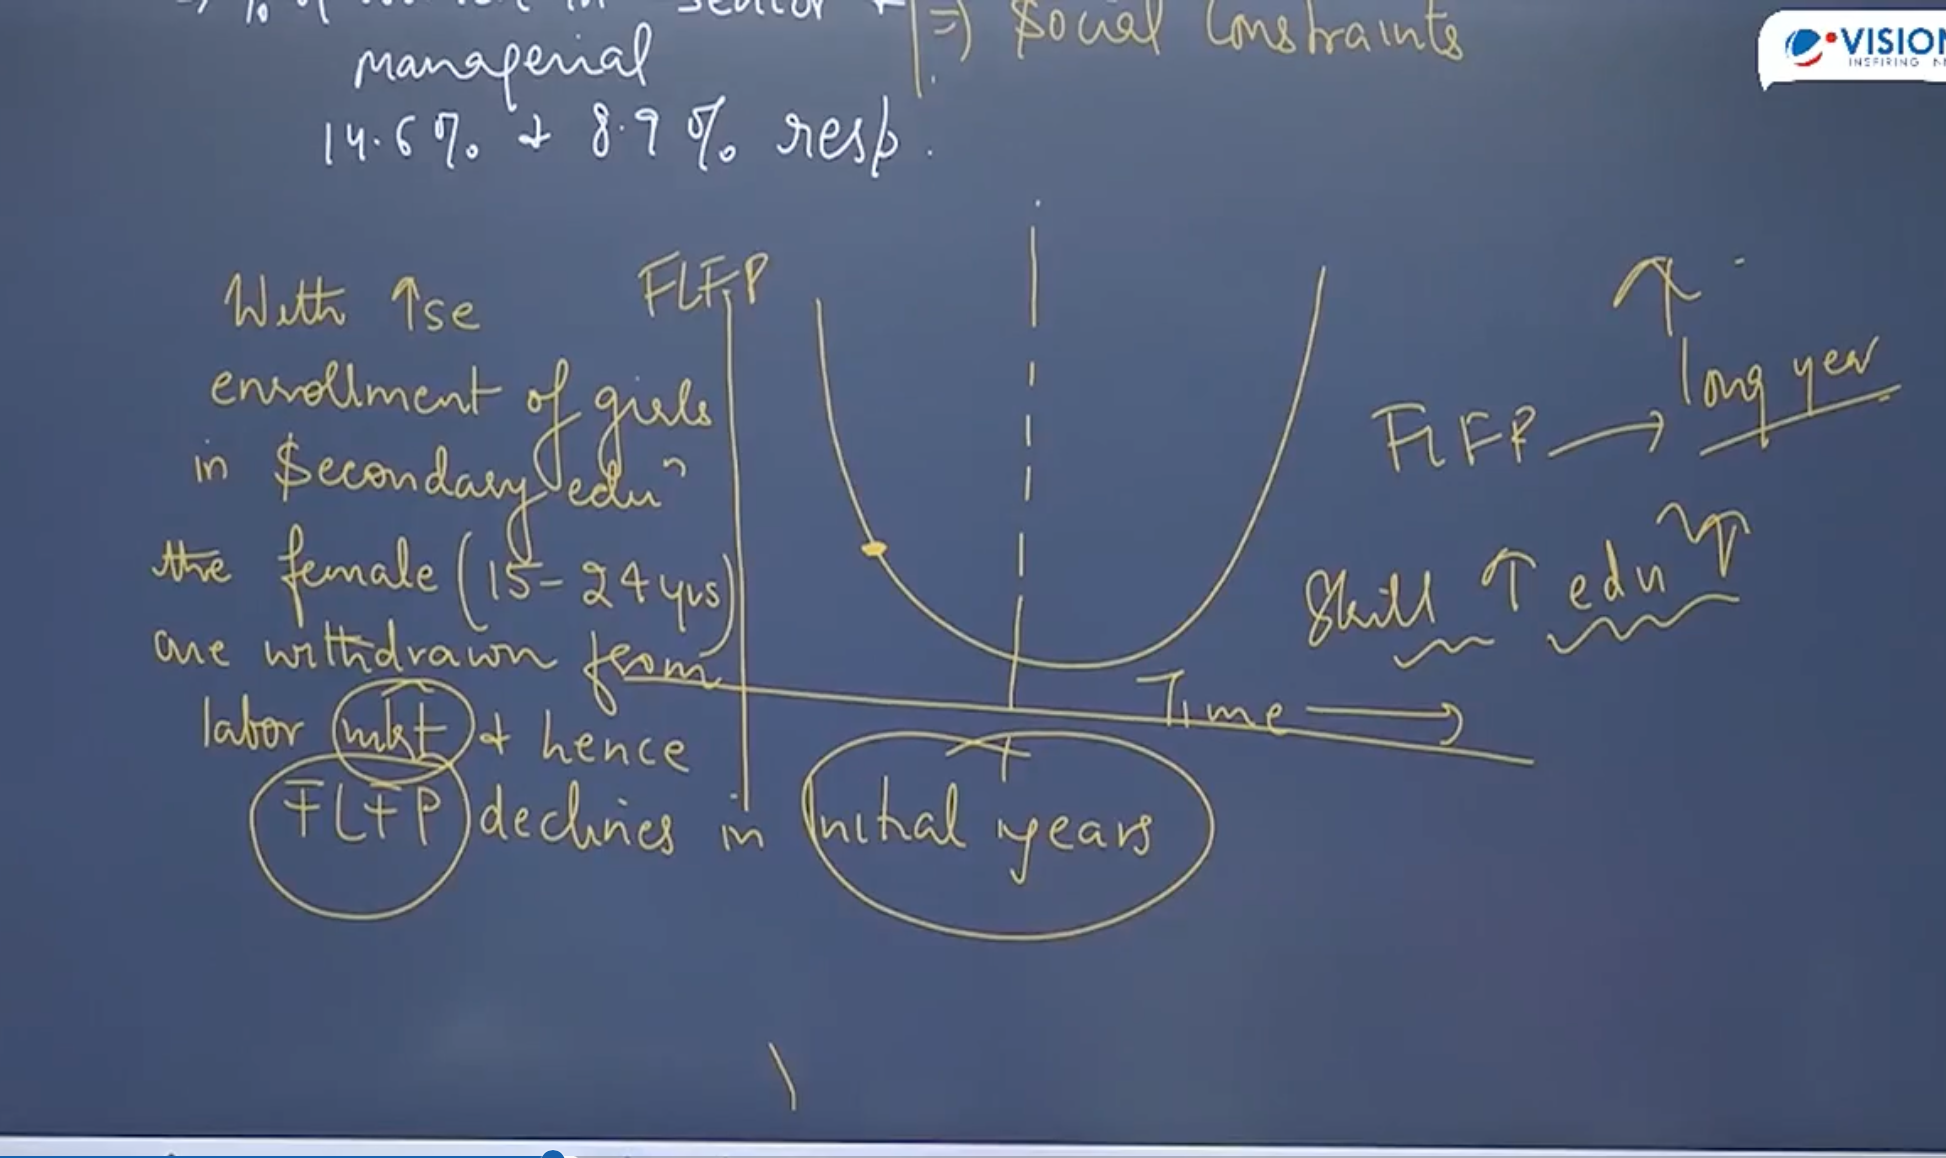 % of women in senior +
managerial
14.6% + 8.9% resp.
=) Social Constraints
VISION
INSPIRING
With ↑se
enrollment of girls
in Secondary eduⁿ
the female (15-24 yrs)
are withdrawn from
labor mkt + hence
FLFP declines in Initial years
FLFP
Time →
↑
long year
FLFP →
Skill ↑ edu ↑